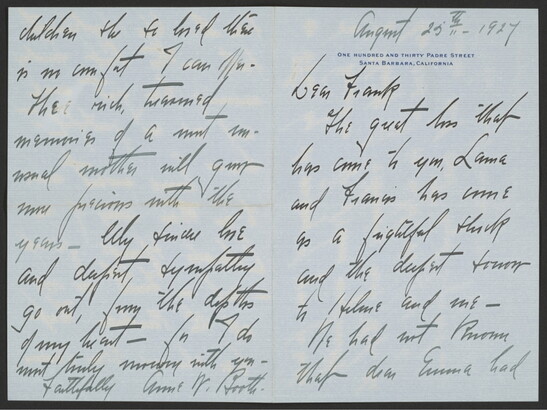 August 25th - 1927
ONE HUNDRED AND THIRTY PADRE STREET
SANTA BARBARA, CALIFORNIA
Dear Frank
The great loss that
has come to you, Laura
and Francis has come
as a frightful shock
and the deepest sorrow
to and me —
We had not known
that dear Emma had
children she so loved there
is no comfort I can offer.
The rich, treasured
memories of a most un-
usual mother will grow
more precious with the
years — My sincere love
and deepest sympathy
go out, from the depths
of my heart — for I do
most truly mourn with you —
Faithfully Anne W. Booth.